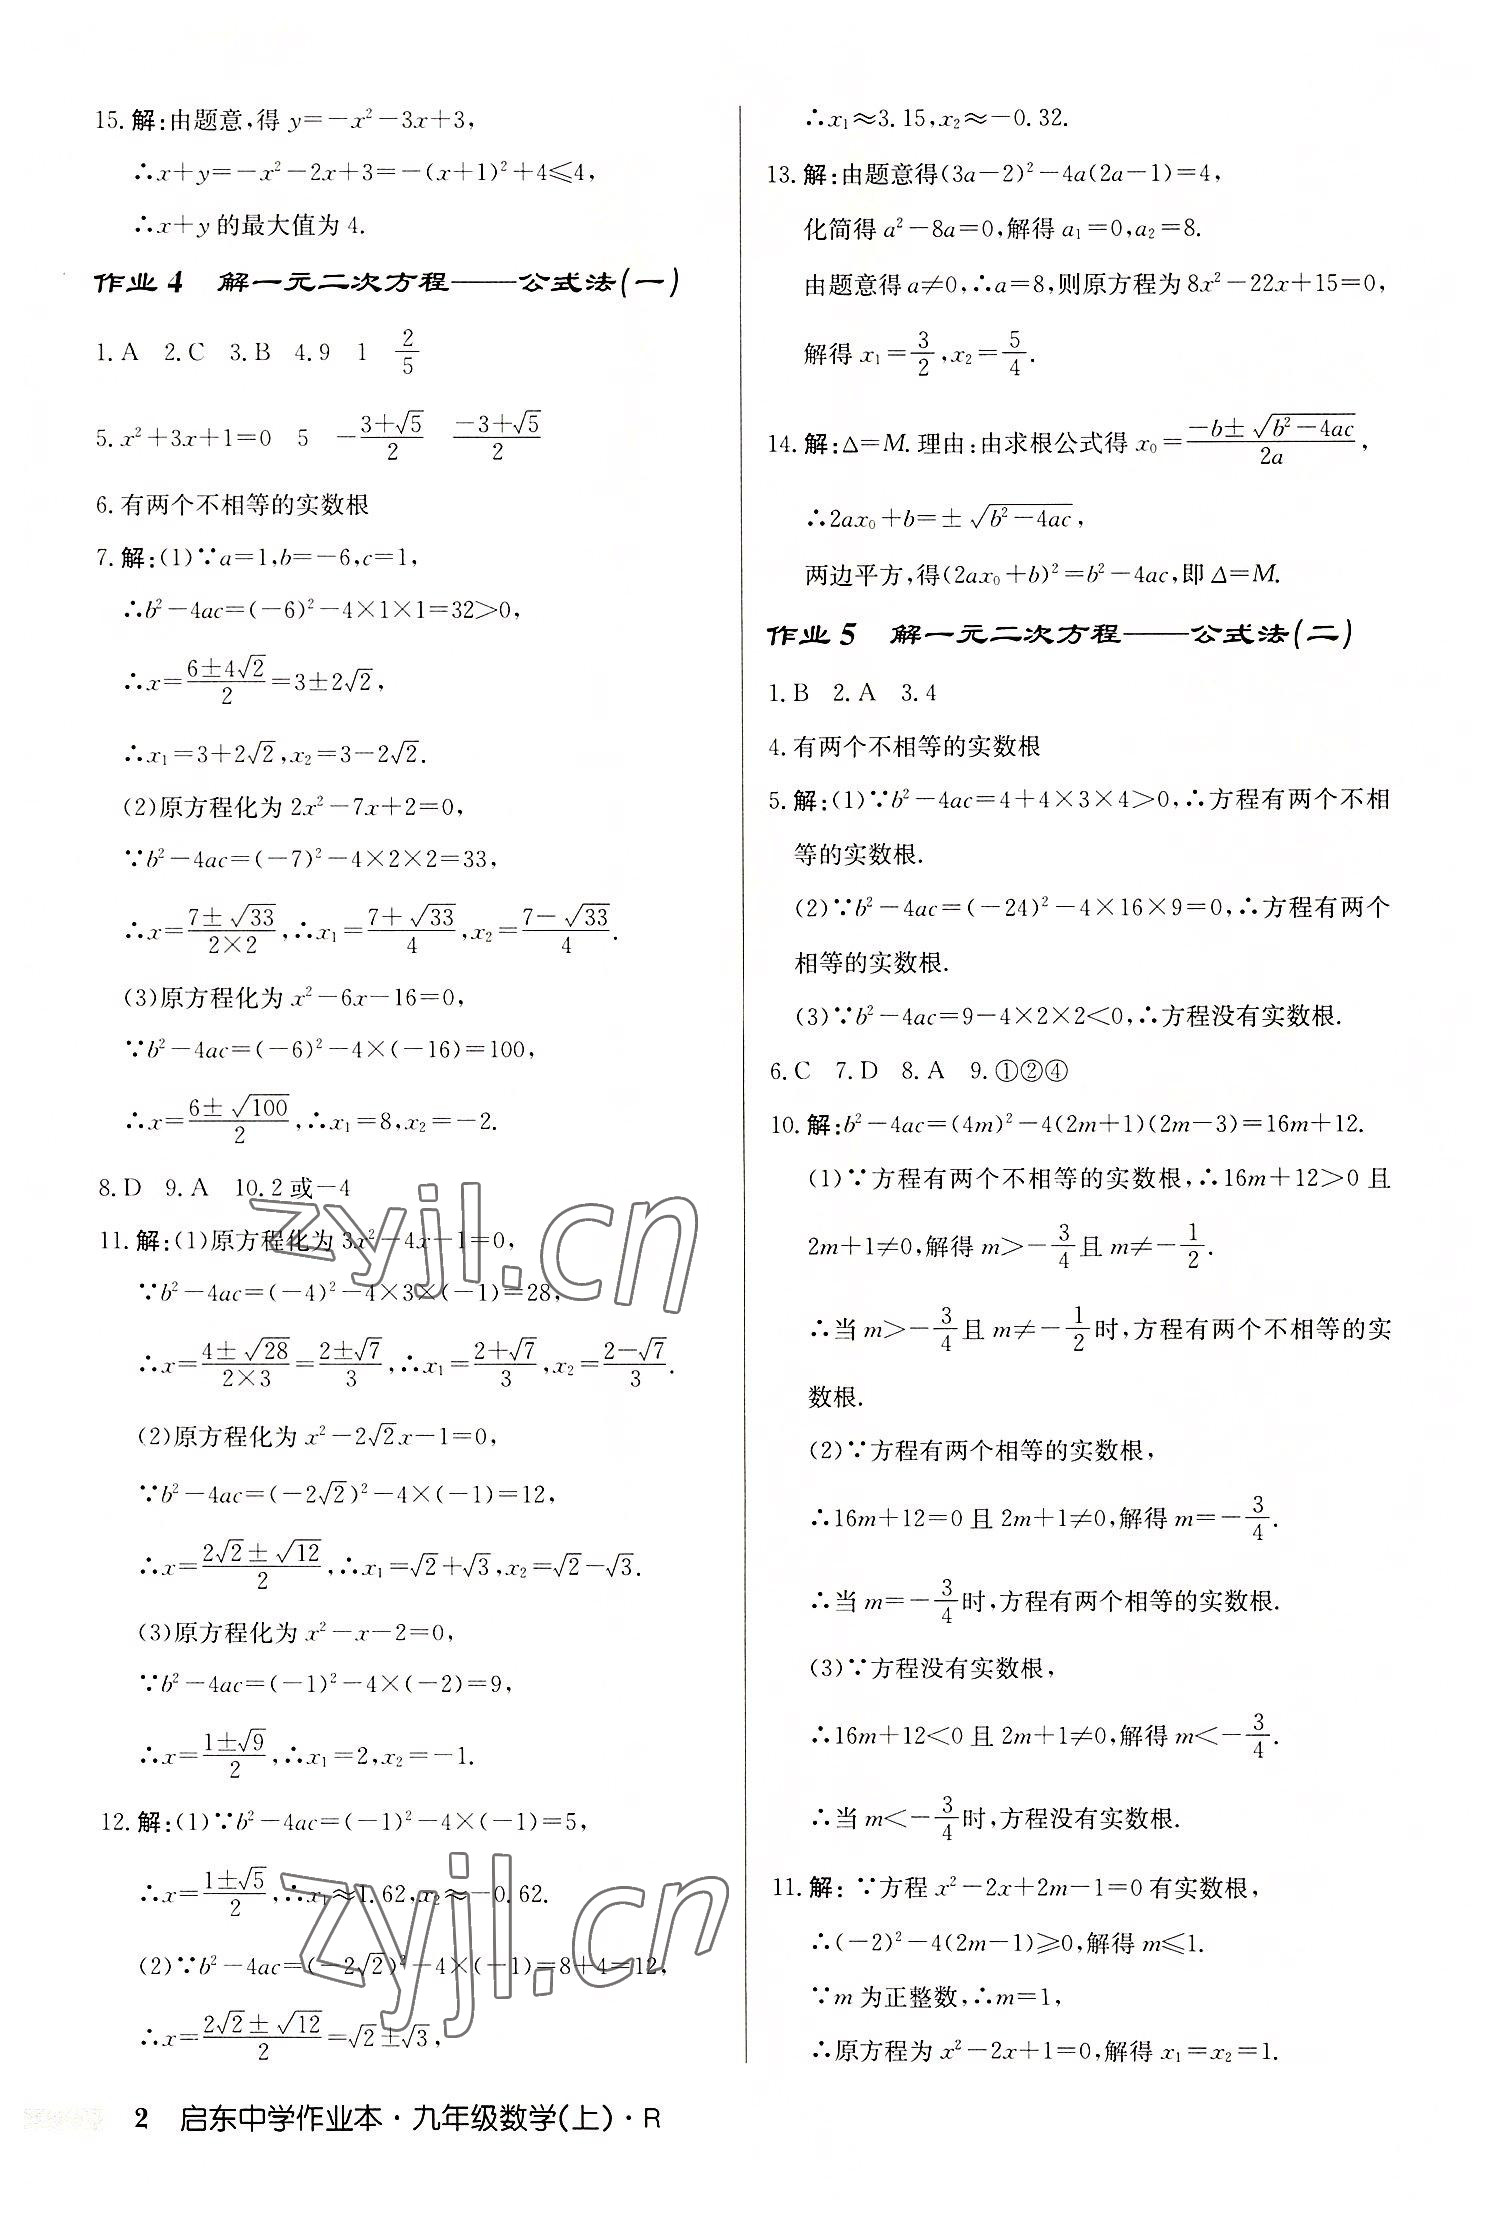 15.解:由题意,得 y=-x²-3x+3,
∴x+y=-x²-2x+3=-(x+1)²+4≤4,
∴x+y 的最大值为 4.
作业 4 解一元二次方程——公式法(一)
1.A 2.C 3.B 4.9 1 2/5
5.x²+3x+1=0 5 -(3+√5)/2 (-3+√5)/2
6.有两个不相等的实数根
7.解:(1)∵a=1,b=-6,c=1,
∴b²-4ac=(-6)²-4×1×1=32>0,
∴x=(6±4√2)/2=3±2√2,
∴x₁=3+2√2,x₂=3-2√2.
(2)原方程化为 2x²-7x+2=0,
∵b²-4ac=(-7)²-4×2×2=33,
∴x=(7±√33)/(2×2),∴x₁=(7+√33)/4,x₂=(7-√33)/4.
(3)原方程化为 x²-6x-16=0,
∵b²-4ac=(-6)²-4×(-16)=100,
∴x=(6±√100)/2,∴x₁=8,x₂=-2.
8.D 9.A 10.2 或-4
11.解:(1)原方程化为 3x²-4x-1=0,
∵b²-4ac=(-4)²-4×3×(-1)=28,
∴x=(4±√28)/(2×3)=(2±√7)/3,∴x₁=(2+√7)/3,x₂=(2-√7)/3.
(2)原方程化为 x²-2√2x-1=0,
∵b²-4ac=(-2√2)²-4×(-1)=12,
∴x=(2√2±√12)/2,∴x₁=√2+√3,x₂=√2-√3.
(3)原方程化为 x²-x-2=0,
∵b²-4ac=(-1)²-4×(-2)=9,
∴x=(1±√9)/2,∴x₁=2,x₂=-1.
12.解:(1)∵b²-4ac=(-1)²-4×(-1)=5,
∴x=(1±√5)/2,∴x₁≈1.62,x₂≈-0.62.
(2)∵b²-4ac=(-2√2)²-4×(-1)=8+4=12,
∴x=(2√2±√12)/2=√2±√3,
∴x₁≈3.15,x₂≈-0.32.
13.解:由题意得(3a-2)²-4a(2a-1)=4,
化简得 a²-8a=0,解得 a₁=0,a₂=8.
由题意得 a≠0,∴a=8,则原方程为 8x²-22x+15=0,
解得 x₁=3/2,x₂=5/4.
14.解:Δ=M.理由:由求根公式得 x₀=(-b±√(b²-4ac))/2a,
∴2ax₀+b=±√(b²-4ac),
两边平方,得(2ax₀+b)²=b²-4ac,即 Δ=M.
作业 5 解一元二次方程——公式法(二)
1.B 2.A 3.4
4.有两个不相等的实数根
5.解:(1)∵b²-4ac=4+4×3×4>0,∴方程有两个不相
等的实数根.
(2)∵b²-4ac=(-24)²-4×16×9=0,∴方程有两个
相等的实数根.
(3)∵b²-4ac=9-4×2×2<0,∴方程没有实数根.
6.C 7.D 8.A 9.①②④
10.解:b²-4ac=(4m)²-4(2m+1)(2m-3)=16m+12.
(1)∵方程有两个不相等的实数根,∴16m+12>0 且
2m+1≠0,解得 m>-3/4 且 m≠-1/2.
∴当 m>-3/4 且 m≠-1/2 时,方程有两个不相等的实
数根.
(2)∵方程有两个相等的实数根,
∴16m+12=0 且 2m+1≠0,解得 m=-3/4.
∴当 m=-3/4 时,方程有两个相等的实数根.
(3)∵方程没有实数根,
∴16m+12<0 且 2m+1≠0,解得 m<-3/4.
∴当 m<-3/4 时,方程没有实数根.
11.解: ∵方程 x²-2x+2m-1=0 有实数根,
∴(-2)²-4(2m-1)≥0,解得 m≤1.
∵m 为正整数,∴m=1,
∴原方程为 x²-2x+1=0,解得 x₁=x₂=1.
2 启东中学作业本·九年级数学(上)·R
zyjl.cn
zyjl.cn